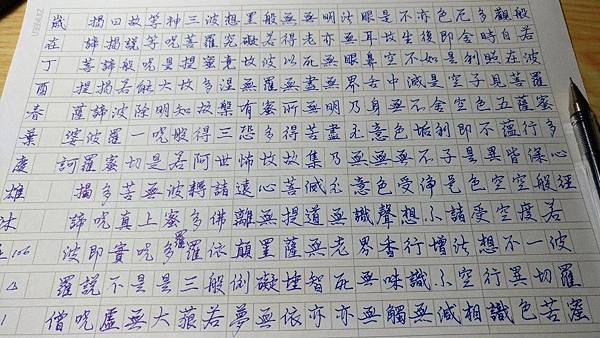 般若波羅蜜多心經
觀自在菩薩行深般若波羅蜜
多時照見五蘊皆空度一切苦
厄舍利子色不異空空不異色
色即是空空即是色受想行識
亦復如是舍利子是諸法空相
不生不滅不垢不淨不增不減
是故空中無色無受想行識無
眼耳鼻舌身意無色聲香味觸
法無眼界乃至無意識界無無
明亦無無明盡乃至無老死亦
無老死盡無苦集滅道無智亦
無得以無所得故菩提薩埵依
般若波羅蜜多故心無罣礙無
罣礙故無有恐怖遠離顛倒夢
想究竟涅槃三世諸佛依般若
波羅蜜多故得阿耨多羅三藐
三菩提故知般若波羅蜜多是大
神咒是大明咒是無上咒是無
等等咒能除一切苦真實不虛
故說般若波羅蜜多咒即說咒
曰揭諦揭諦波羅揭諦波羅僧
揭諦菩提薩婆訶
歲在丁酉春葉慶雄沐